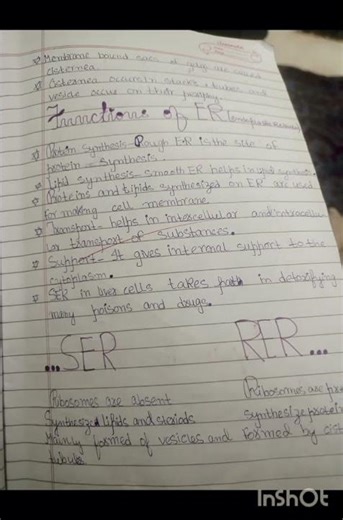 Membrane bound sacs of golgi are called
cisternea.
Cisternea occurs in stacks, tubes and
vesicle occur on their periphery
Functions of ER
Protein synthesis - Rough ER is the site of
protein - synthesis.
Lipid synthesis - smooth ER helps in lipid synthesis.
Proteins and Lipids synthesized on ER are used
for making cell membrane
Transport - helps in intercellular and intracellu
lar transport of substances.
Support - It gives internal support to the
cytoplasm.
SER in liver cells takes path in detoxifying
many poisons and drugs.
...SER RER...
Ribosomes are absent Ribosomes are pre
Synthesized lipids and steriods synthesize protein
Mainly formed of vesicles and formed by cist
tubule
InShOt